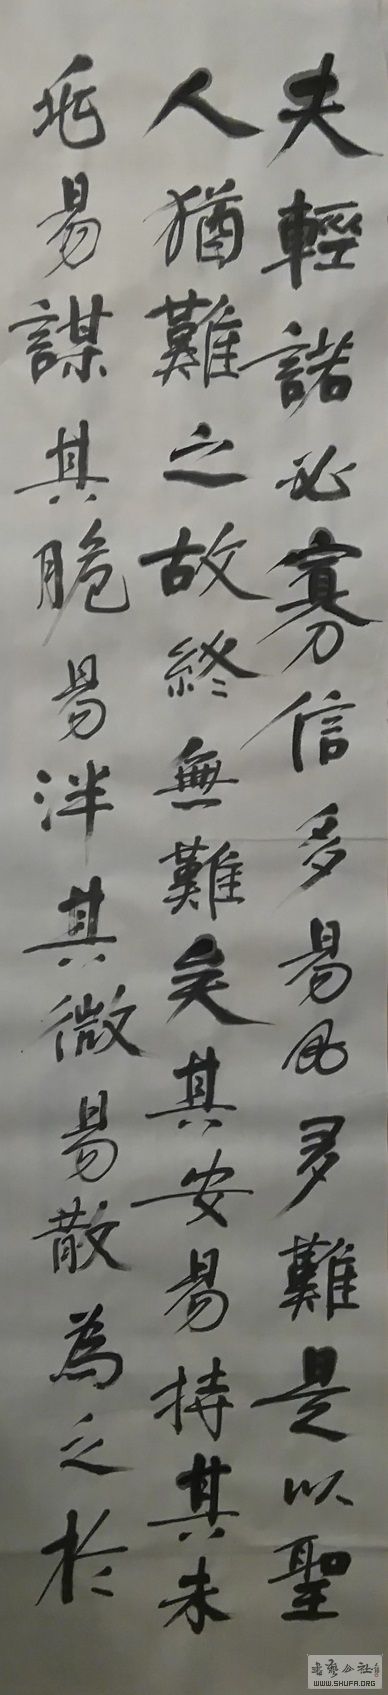 夫輕諾必寡信多易必多難是以聖
人猶難之故終無難矣其安易持其未
兆易謀其脆易泮其微易散為之於
書藝公社
WWW.SHUFA.ORG